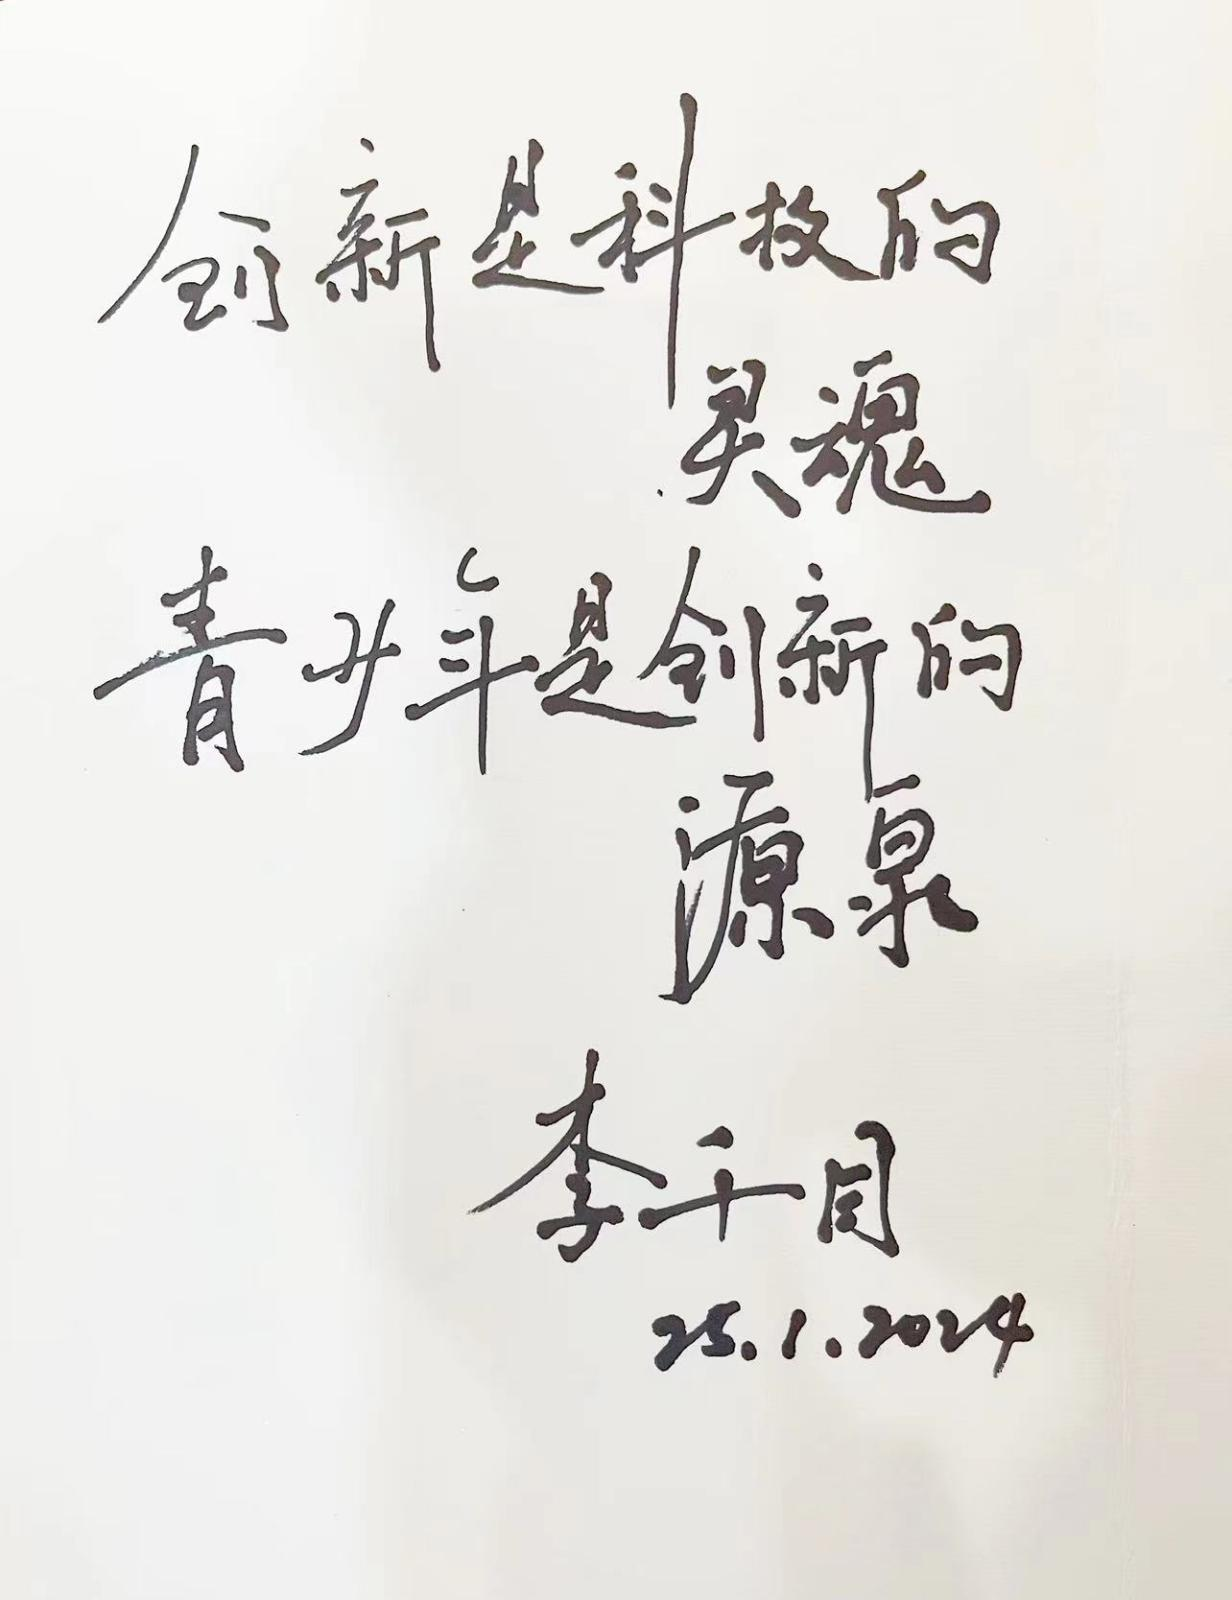 创新是科技的
灵魂
青少年是创新的
源泉
李千目
25.1.2024